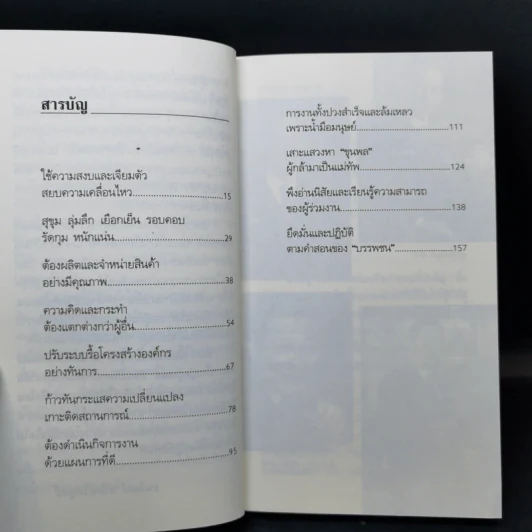 สารบัญ
ใช้ความสงบและเจียมตัว
สยบความเคลื่อนไหว 15
สุขุม ลุ่มลึก เยือกเย็น รอบคอบ
รัดกุม หนักแน่น 29
ต้องผลิตและจำหน่ายสินค้า
อย่างมีคุณภาพ 38
ความคิดและกระทำ
ต้องแตกต่างกว่าผู้อื่น 54
ปรับระบบรื้อโครงสร้างองค์กร
อย่างทันการ 67
ก้าวทันกระแสความเปลี่ยนแปลง
เกาะติดสถานการณ์ 78
ต้องดำเนินกิจการงาน
ด้วยแผนการที่ดี 95
การงานทั้งปวงสำเร็จและล้มเหลว
เพราะน้ำมือมนุษย์ 111
เสาะแสวงหา “ขุนพล”
ผู้กล้ามาเป็นแม่ทัพ 124
พึงอ่านนิสัยและเรียนรู้ความสามารถ
ของผู้ร่วมงาน 138
ยึดมั่นและปฏิบัติ
ตามคำสอนของ “บรรพชน” 157